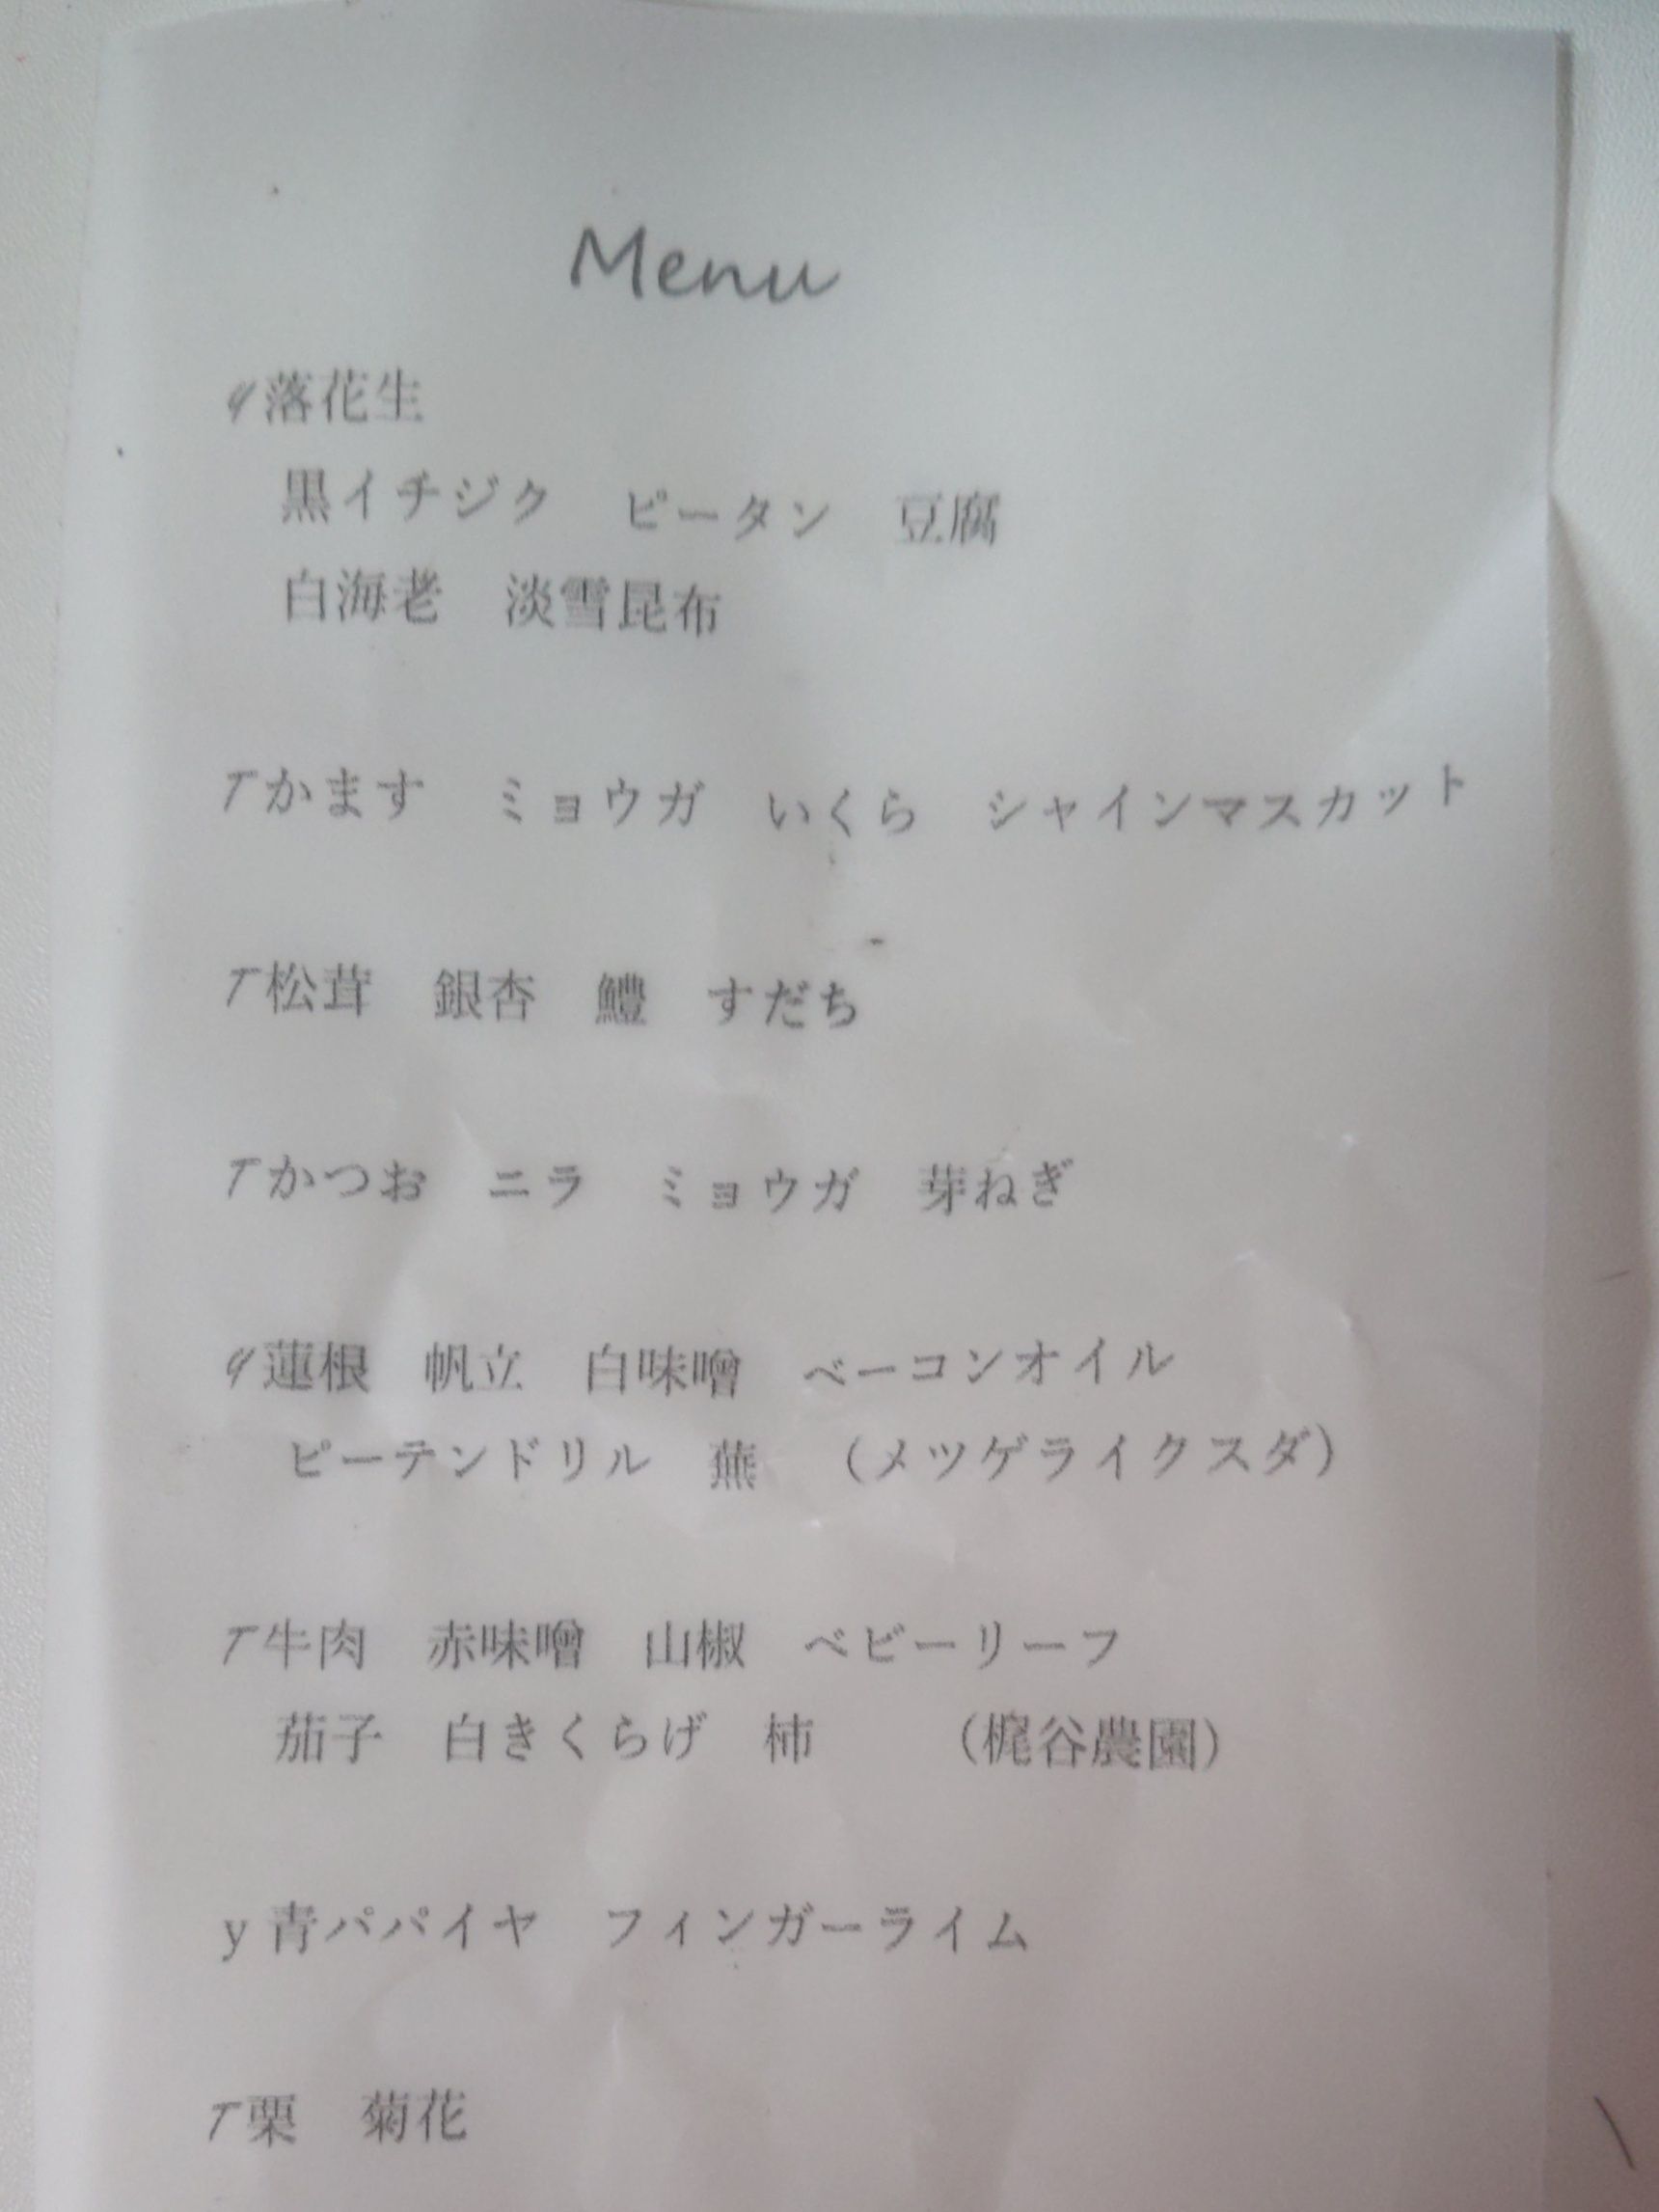 Menu
y 落花生
黒イチジク ピータン 豆腐
白海老 淡雪昆布
T かます ミョウガ いくら シャインマスカット
T 松茸 銀杏 鱧 すだち
T かつお ニラ ミョウガ 芽ねぎ
y 蓮根 帆立 白味噌 ベーコンオイル
ピーテンドリル 蕪 （メツゲライクスダ）
T 牛肉 赤味噌 山椒 ベビーリーフ
茄子 白きくらげ 柿 （梶谷農園）
y 青パパイヤ フィンガーライム
T 栗 菊花